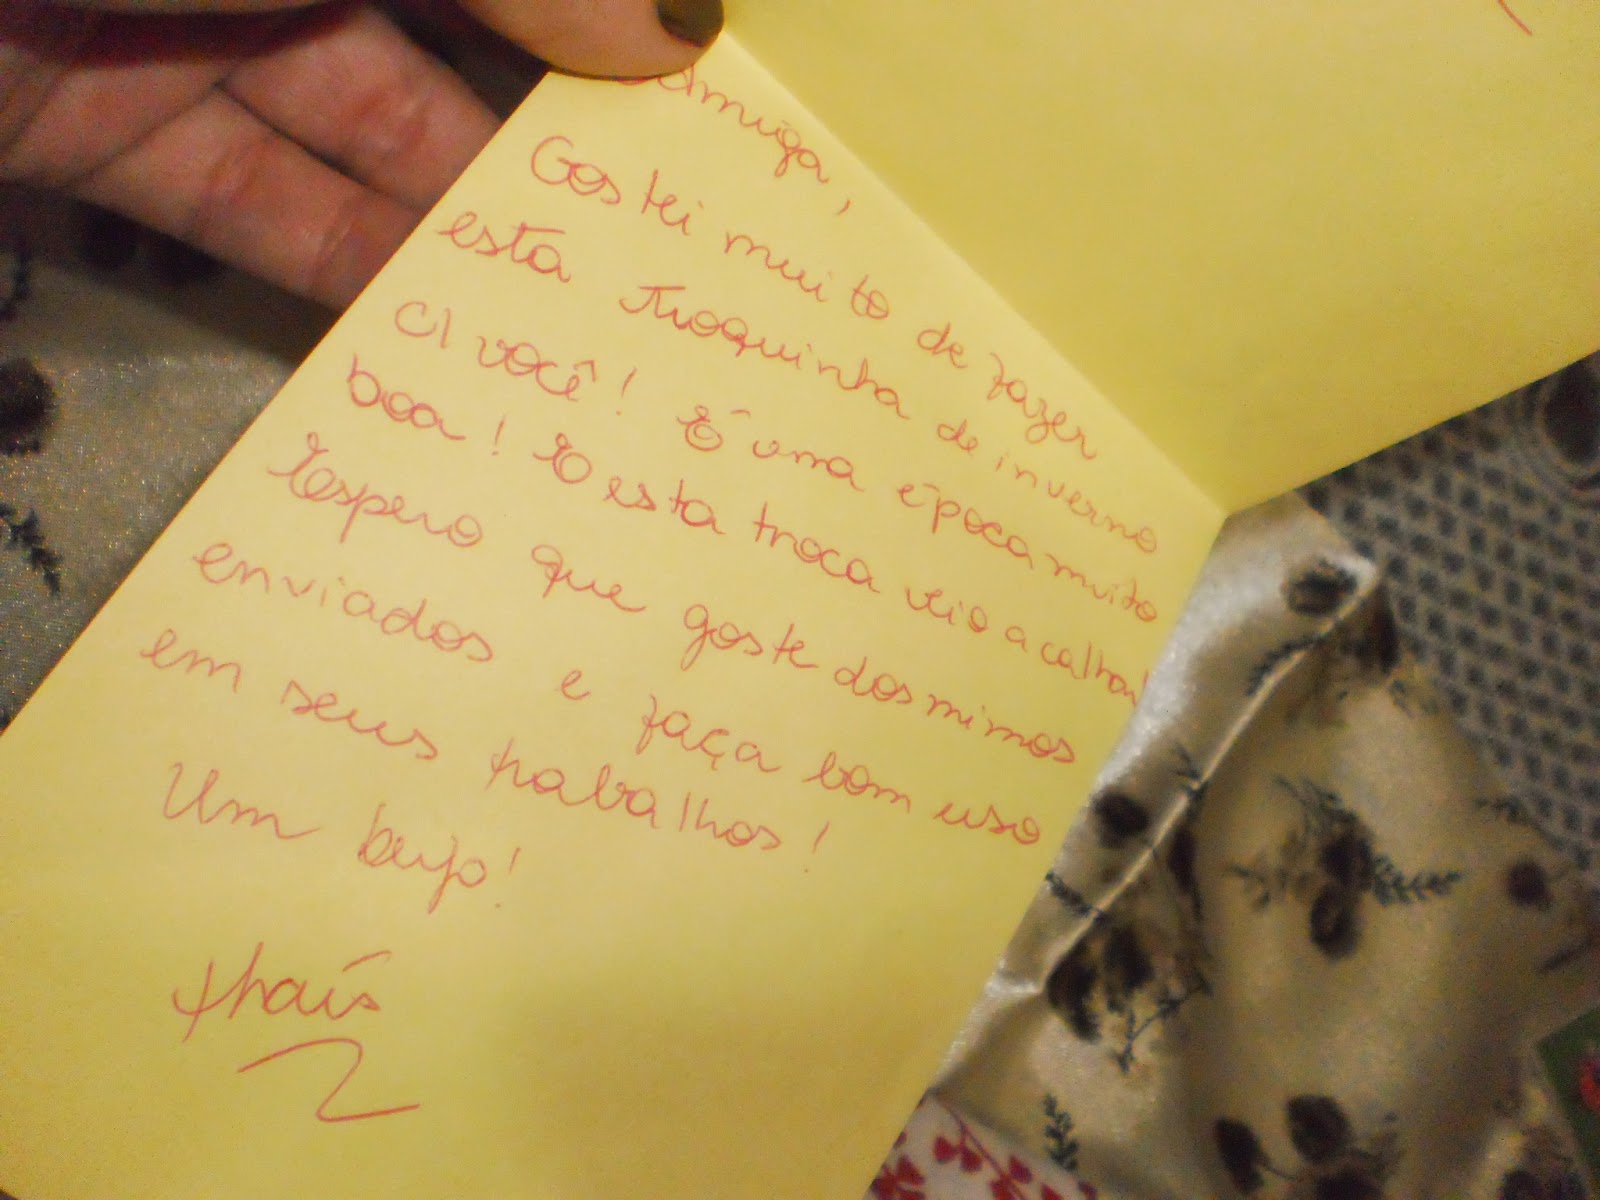 Amiga,
Gostei muito de fazer
esta troquinha de inverno
c/ você! É uma época muito
boa! E esta troca veio a calhar!
Espero que goste dos mimos
enviados e faça bom uso
em seus trabalhos!
Um beijo!
Thaís